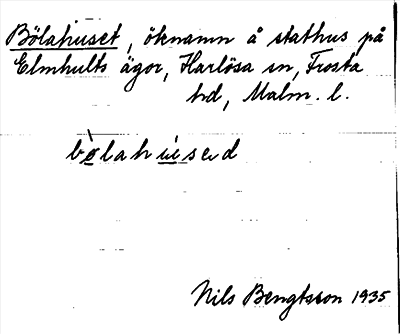 Bölahuset, öknamn å stathus på
Elmhults ägor, Harlösa sn, Frosta
hd, Malm. l.
bølahusəd
Nils Bengtsson 1935